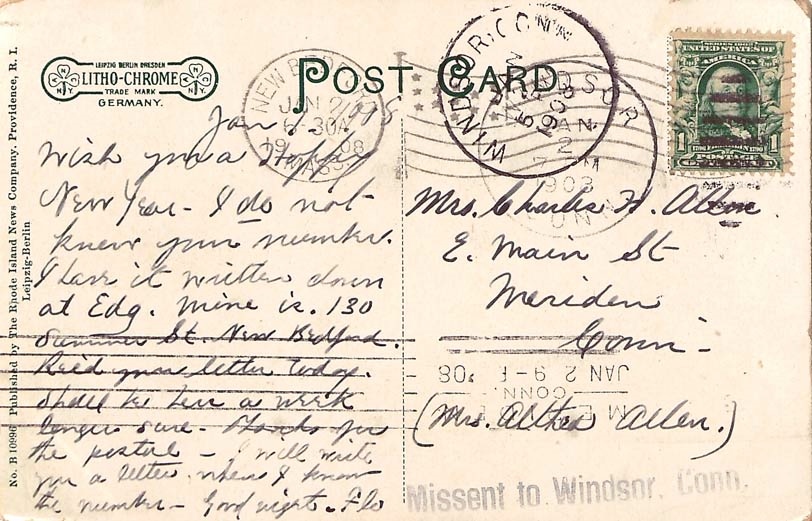 POST CARD
LEIPZIG BERLIN DRESDEN
LITHO-CHROME
TRADE MARK
GERMANY.
N.Y.
N.Y.
No. B 10996 Published by The Rhode Island News Company, Providence, R. I.
Leipzig-Berlin
NEW BEDFORD
JAN 2
6-30A
1908
MASS.
WINDSOR, CONN.
1908
WINDSOR
JAN
2
7 M
1908
CONN.
SERIES 1902
UNITED STATES OF AMERICA
1 1
POSTAGE
Jan. 1, 1908
Wish you a Happy
New Year - I do not
know your number.
I have it written down
at Edg. Mine is. 130
Summer St. New Bedford.
Rec'd your letter today.
Shall be here a week
longer sure - Thanks for
the postal - I will write
you a letter when I know
the number - Good night. Flo
Mrs. Charles H. Allen.
E. Main St
Meriden
Conn -
(Mrs. Althea Allen.)
JAN 29 - '08
CONN
Missent to Windsor, Conn.